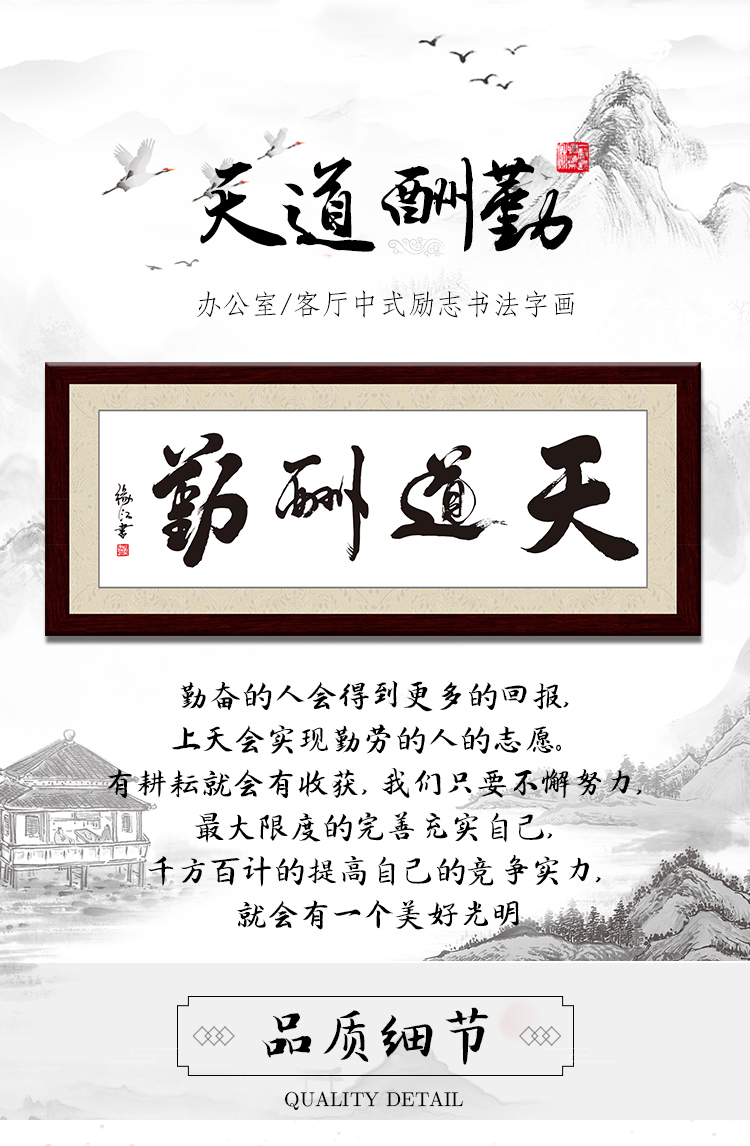 天道酬勤
办公室/客厅中式励志书法字画
天道酬勤
勤奋的人会得到更多的回报,
上天会实现勤劳的人的志愿。
有耕耘就会有收获,我们只要不懈努力,
最大限度的完善充实自己,
千方百计的提高自己的竞争实力,
就会有一个美好光明
品质细节
QUALITY DETAIL